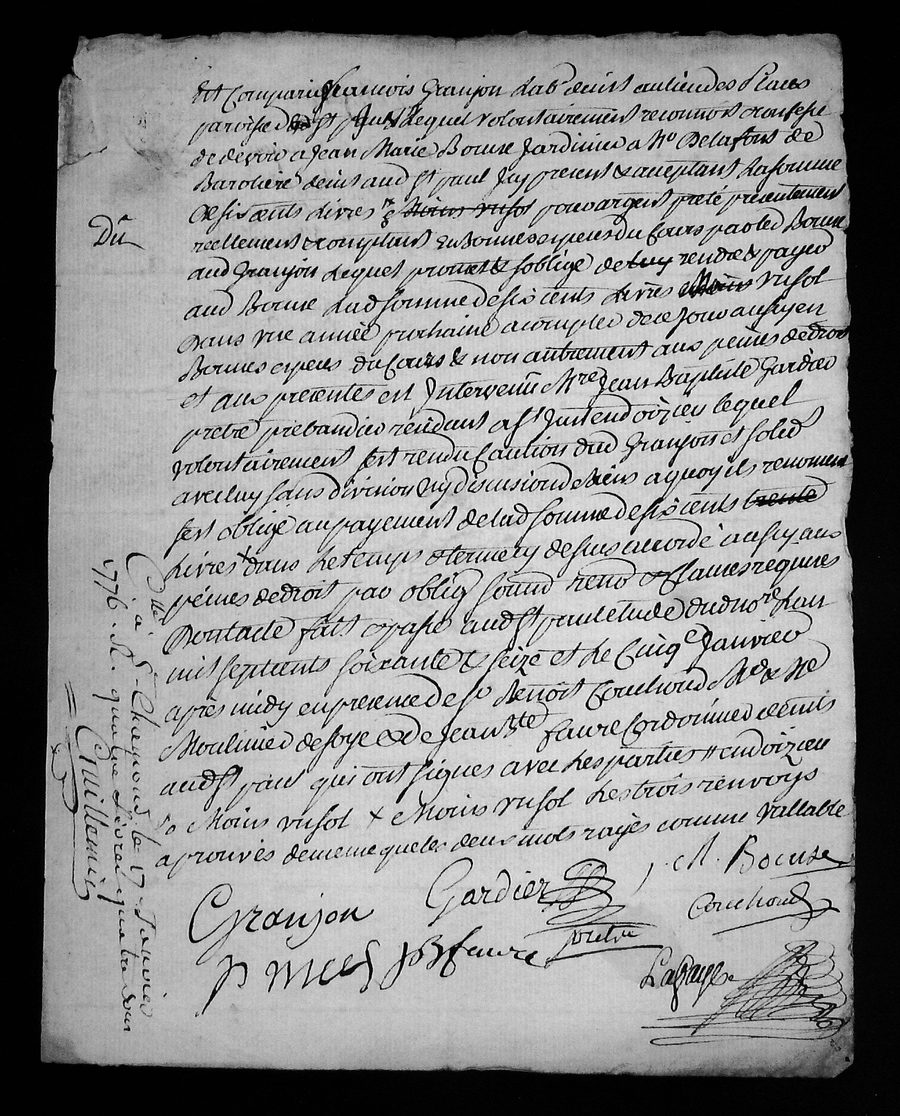 est Comparu francois Granjon Lab.r deint au lieu des Places
paroisse de St Just Lequel volontairement reconnoit & confesse
de devoir a Jean Marie Bocuse Jardinier a Mr Delafons de
Baroliere deint aud St paul Jcy present & acceptant La somme
de six cents Livres moins un sol pour argent preté presentement
reellement & comptant en Bonnes especes du Cours par led Bocuse
aud Granjon Lequel promet & s'oblige de Luy rendre & payer
aud Bocuse Lad somme de six cents Livres moins un sol
Dans une année prochaine a compter de ce Jour aussy en
Bonnes especes du Cours & non autrement aux peines de droit
et aux presentes est Intervenu Mre Jean Baptiste Gardier
pretre prebandier residant a St Just en doizieu lequel
volontairement s'est rendu Caution dud Granjon et solid
avec luy sans division ny discussion de biens a quoy ils renoncent
s'est obligé au payement de lad somme de six cents trente
Livres x dans Le temps & terme cy dessus accordé aussy aux
peines de droit par oblig soumd renond & Clauses requises
Dont acte fait & passé aud St paul etude dud nore L'an
mil sept cents soixante & seize et Le Cinqe Janvier
apres midy en presence de sr Benoit Couchoud Md & Me
Moulinier de soye & de Jean Bte faure Cordonnier deints
aud St paul qui ont signes avec Les parties # en doizieu
& Moins un sol x Moins un sol Les trois renvoys
aprouvés de meme que les deux mots rayés comme vallable
Granjon Gardier J. M. Bocuse
pretre Couchoud
JB faure
Du
Clle à St Chamond le 17 Janvier
1776. R. quatre Livres quatre sous
Guillemin